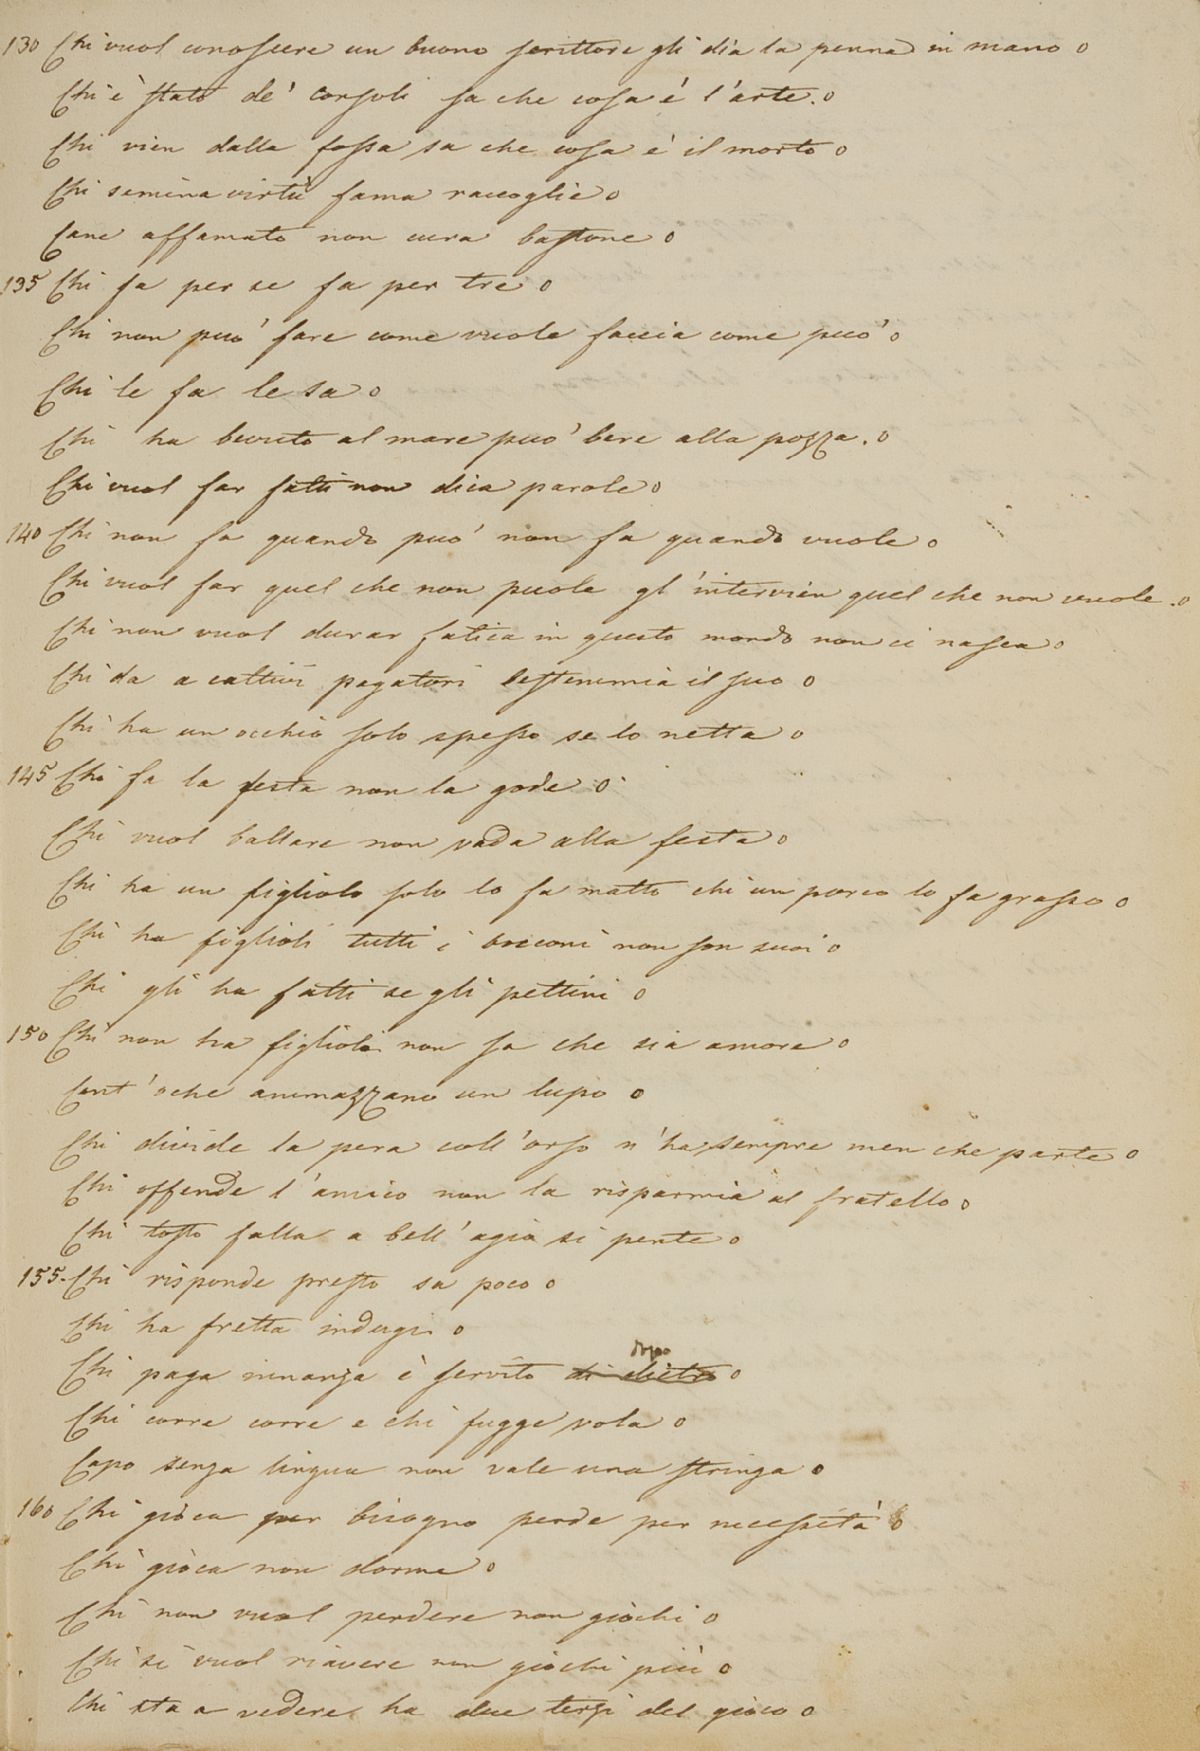 130 Chi vuol conoscere un buono scrittore gli dia la penna in mano o
Chi è stato de' Consoli sa che cosa é l'arte. o
Chi vien dalla fossa sa che cosa è il morto o
Chi semina virtù fama raccoglie o
Cane affamato non cura bastone o
135 Chi fa per se fa per tre o
Chi non può fare come vuole faccia come può o
Chi le fa le sa o
Chi ha bevuto al mare può bere alla pozza. o
Chi vuol far fatti non dica parole o
140 Chi non fa quando può non fa quando vuole o
Chi vuol far quel che non puole gl'intervien quel che non vuole. o
Chi non vuol durar fatica in questo mondo non ci nasca o
Chi da a cattivi pagatori bestemmia il suo o
Chi ha un occhio solo spesso se lo netta o
145 Chi fa la festa non la gode o
Chi vuol ballare non vada alla festa o
Chi ha un figliolo solo lo fa matto chi un porco lo fa grasso o
Chi ha figlioli tutti i bocconi non son suoi o
Chi gli ha fatti se gli pettini o
150 Chi non ha figlioli non sa che sia amore o
Cent'oche ammazzano un lupo o
Chi divide la pera coll'orso n'ha sempre men che parte o
Chi offende l'amico non la risparmia al fratello o
Chi tosto falla a bell'agio si pente o
155. Chi risponde presto sa poco o
Chi ha fretta indugi o
Chi paga innanza è servito di dietro dopo o
Chi corre corre e chi fugge vola o
Capo senza lingua non vale una stringa o
160 Chi gioca per bisogno perde per necessità o
Chi gioca non dorme o
Chi non vuol perdere non giochi o
Chi si vuol riavere non giochi più o
Chi sta a vedere ha due terzi del gioco o